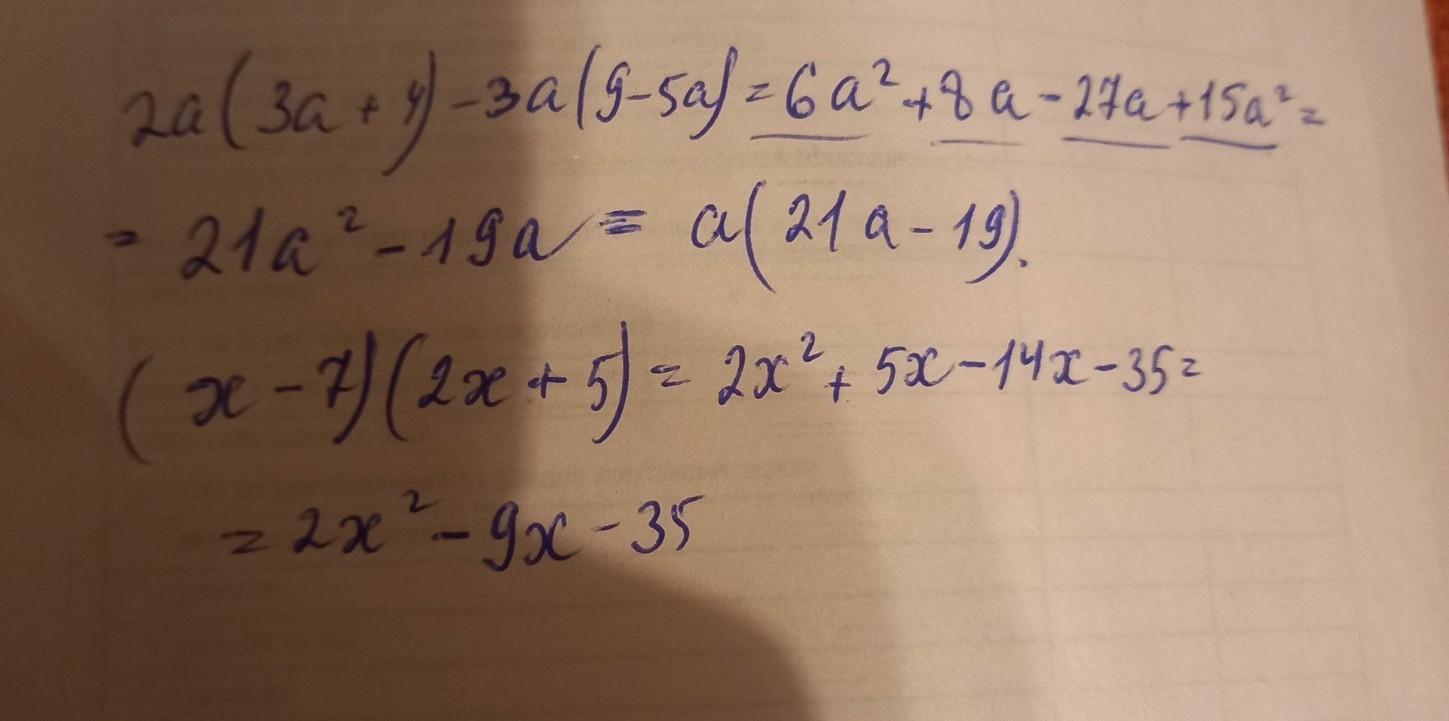 2a(3a+4)-3a(9-5a)=6a²+8a-27a+15a²=
=21a²-19a=a(21a-19).
(x-7)(2x+5)=2x²+5x-14x-35=
=2x²-9x-35